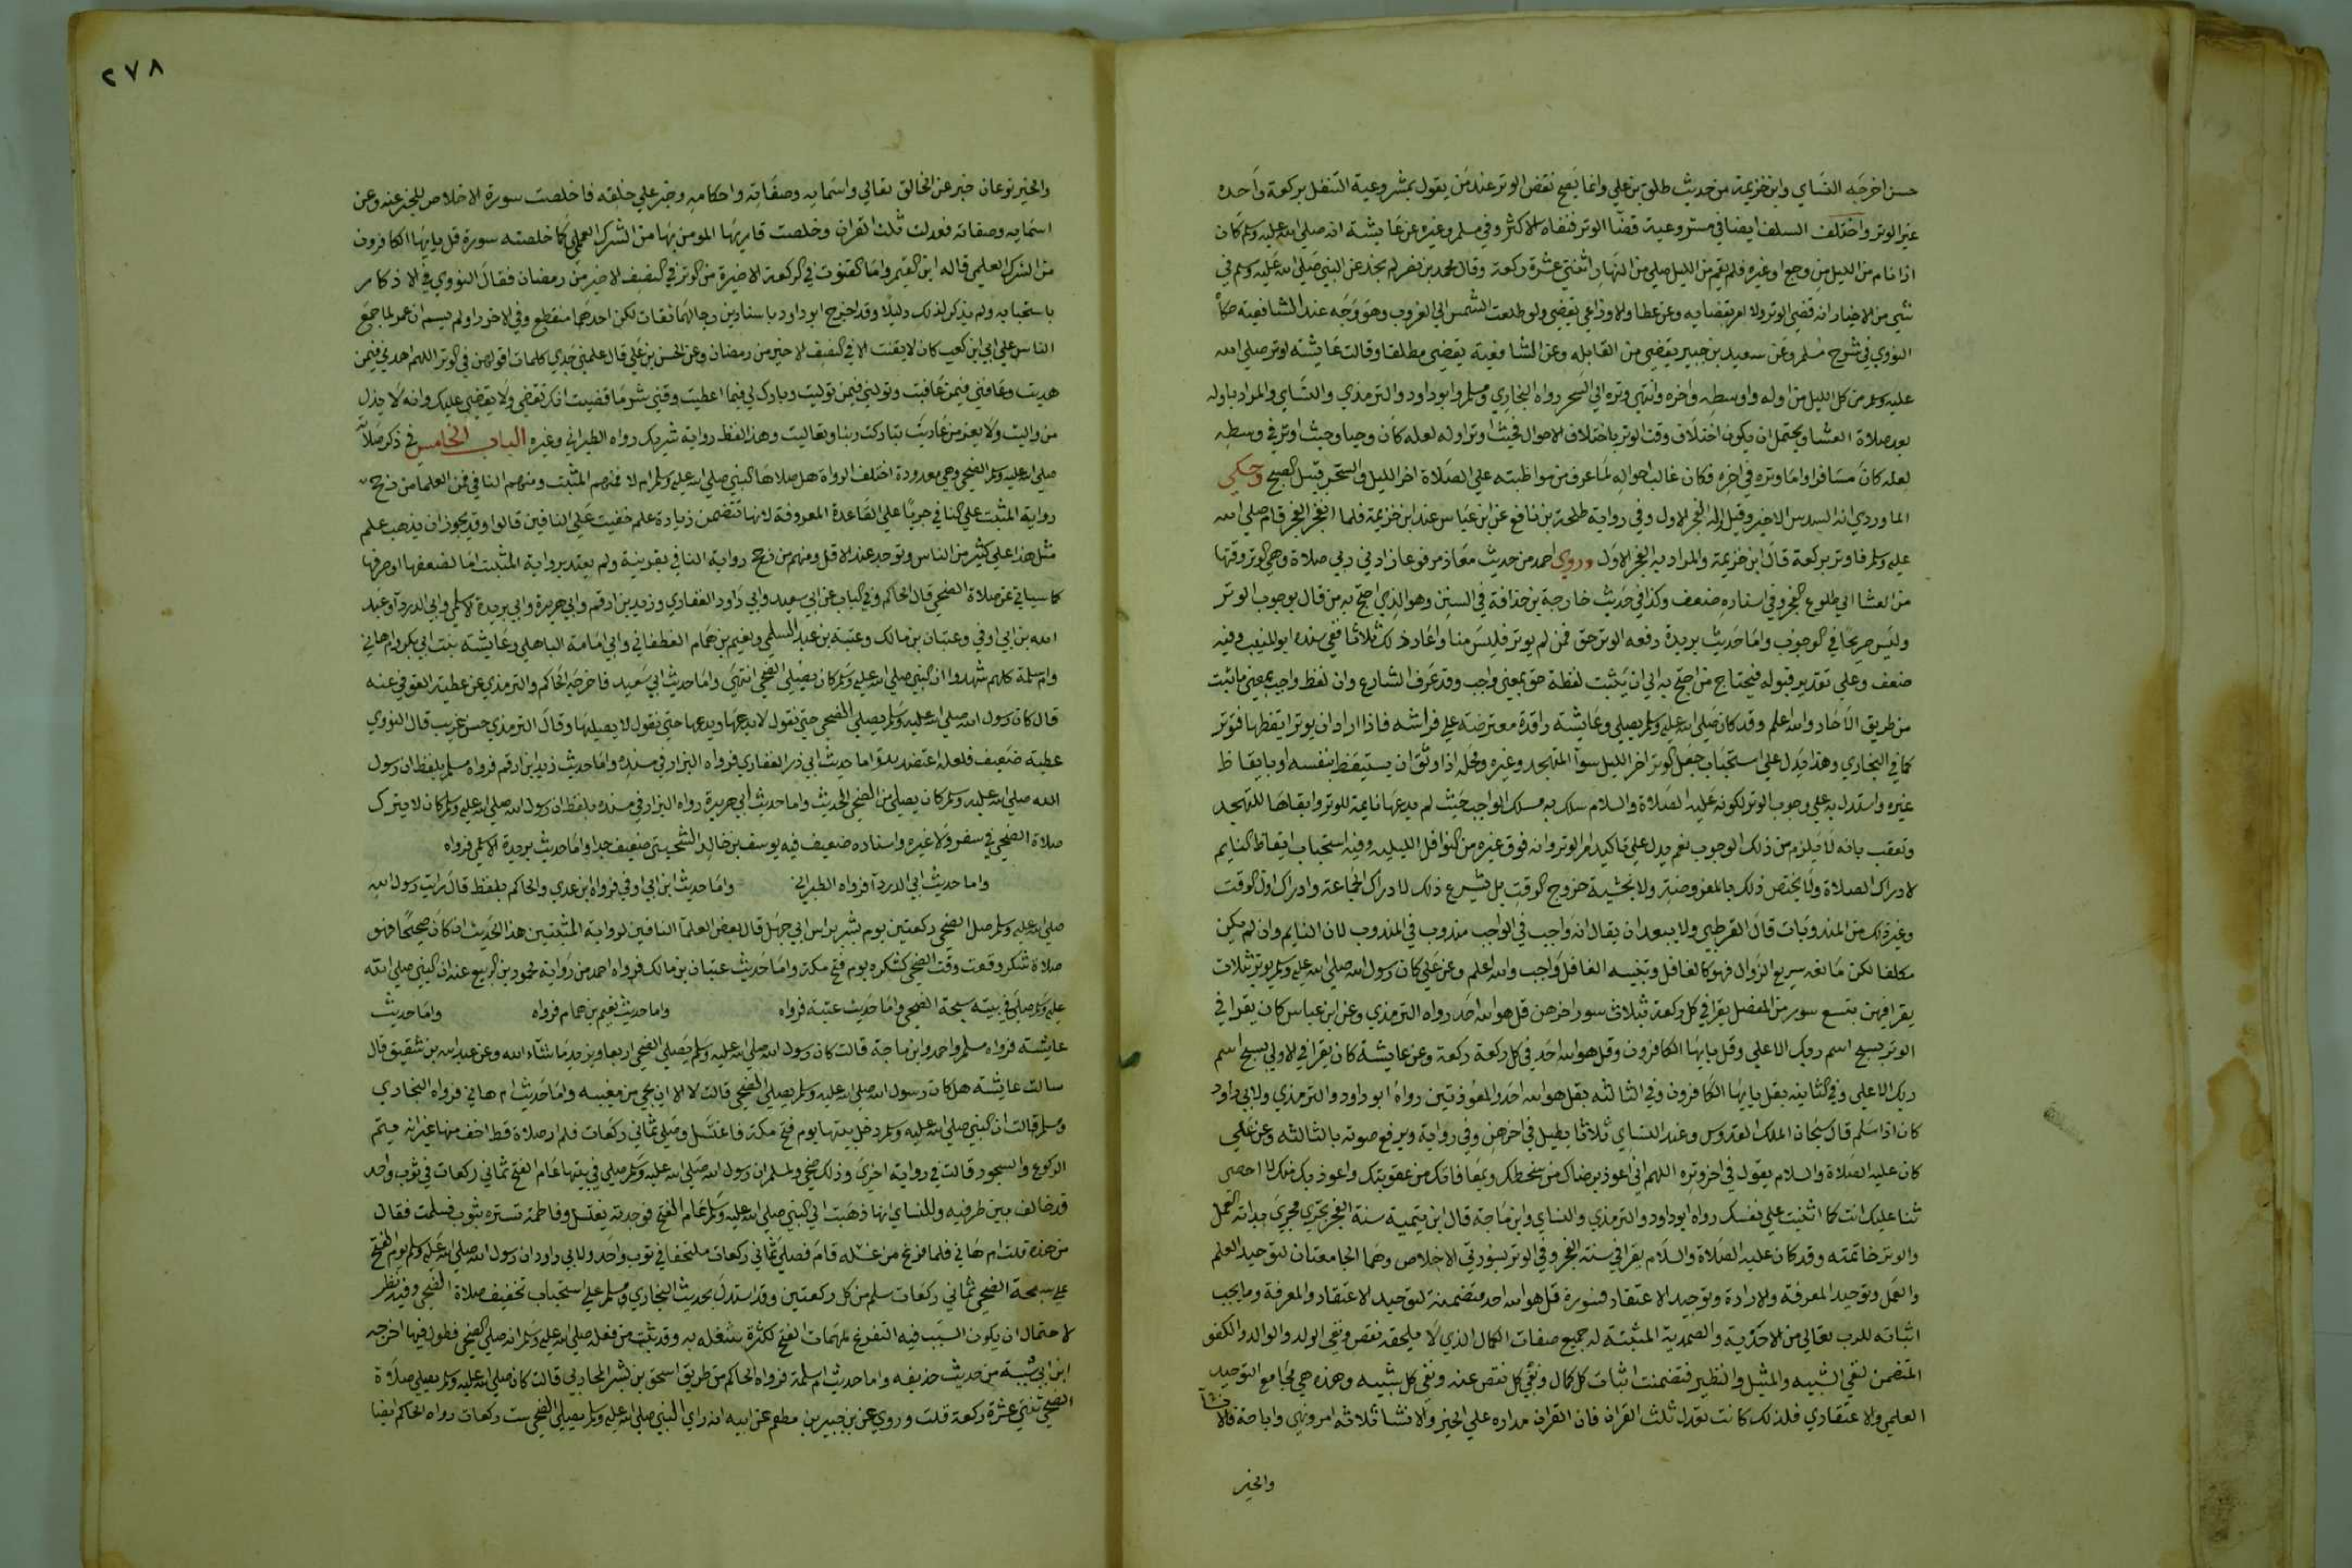 حسن اخرجه النساي وابن خزيمة من حديث طلق بن علي وانما يصح نقض الوتر عند من يقول بمشروعية التنفل بركعة واحده
غير الوتر واختلف السلف ايضا في مشروعية قضا الوتر فنفاه الاكثر وفي مسلم وغيره عن عايشة انه صلي الله عليه وسلم كان
اذا نام من الليل من وجع او غيره فلم يقم من الليل صلي من النهار اثنتي عشرة ركعة وقال محمد بن نصر لم نجد عن النبي صلي الله عليه وسلم في
شي من الاخبار انه قضي الوتر ولا امر بقضايه وعن عطا والاوزاعي يقضي ولو طلعت الشمس الي الغروب وهو وجه عند الشافعية حكاه
النووي في شرح مسلم وعن سعيد بن جبير يقضي من القابله وعن الشافعية يقضي مطلقا وقالت عايشه اوتر صلي الله
عليه وسلم من كل الليل من اوله واوسطه واخره وانتهي وتره الي السحر رواه البخاري ومسلم وابو داود والترمذي والنساي والمراد باوله
بعد صلاة العشا ويحتمل ان يكون اختلاف وقت الوتر باختلاف الاحوال فحيث اوتر اوله لعله كان وجعا وحيث اوتر في وسطه
لعله كان مسافرا واما وتره في اخره فكان غالب احواله لما عرف من مواظبته علي الصلاة اخر الليل والسحر قبيل الصبح وحكي
الماوردي انه السدس الاخير وقيل اوله الفجر الاول وفي رواية طلحة بن نافع عن ابن عباس عند ابن خزيمة فلما انفجر الفجر قام صلي الله
عليه وسلم فاوتر بركعة قال ابن خزيمة والمراد به الفجر الاول وروي احمد من حديث معاذ مرفوعا زادني ربي صلاة وهي الوتر وقتها
من العشا الي طلوع الفجر وفي اسناده ضعف وكذا في حديث خارجة بن حذافة في السنن وهو الذي احتج به من قال بوجوب الوتر
وليس صريحا في الوجوب واما حديث بريدة رفعه الوتر حق فمن لم يوتر فليس منا واعاد ذلك ثلاثا ففي سنده ابو المنيب وفيه
ضعف وعلي تقدير قبوله فيحتاج من احتج به الي ان يثبت لفظة حق بمعني واجب وقد عرف الشارع وان لفظ واجب بمعني ما ثبت
من طريق الاحاد والله اعلم وقد كان صلي الله عليه وسلم يصلي وعايشة راقدة معترضة علي فراشه فاذا اراد ان يوتر ايقظها فتوتر
كما في البخاري وهذا يدل علي استحباب جعل الوتر اخر الليل سوآ المتهجد وغيره ومحله اذا وثق ان يستيقظ بنفسه او بايقاظ
غيره واستدل به علي وجوب الوتر لكونه عليه الصلاة والسلام سلك به مسلك الواجب حيث لم يدعها نايمة للوتر وابقاها للتهجد
وتعقب بانه لا يلزم من ذلك الوجوب نعم يدل علي تاكيد امر الوتر وانه فوق غيره من النوافل الليليه وفيه استحباب ايقاظ النايم
لادراك الصلاة ولا يختص ذلك بالمفروضة ولا بخشية خروج الوقت بل يشرع ذلك لادراك الجماعة وادراك اول الوقت
وغير ذلك من المندوبات قال القرطبي ولا يبعد ان يقال انه واجب في الواجب مندوب في المندوب لان النايم وان لم يكن
مكلفا لكن مانعه سريع الزوال فهو كالغافل وتنبيه الغافل واجب والله اعلم وعن علي كان رسول الله صلي الله عليه وسلم يوتر بثلاث
يقرا فيهن بتسع سور من المفصل يقرا في كل ركعة بثلاث سور اخرهن قل هو الله احد رواه الترمذي وعن ابن عباس كان يقرا في
الوتر بسبح اسم ربك الاعلي وقل يا يها الكافرون وقل هو الله احد في كل ركعة ركعة وعن عايشة كان يقرا في الاولي بسبح اسم
ربك الاعلي وفي الثانيه بقل يا يها الكافرون وفي الثالثه بقل هو الله احد والمعوذتين رواه ابو داود والترمذي ولابي داود
كان اذا سلم قال سبحان الملك القدوس وعند النساي ثلاثا يطيل في اخرهن وفي رواية ويرفع صوته بالثالثه وعن علي
كان عليه الصلاة والسلام يقول في اخر وتره اللهم اني اعوذ برضاك من سخطك وبمعافاتك من عقوبتك واعوذ بك منك لا احصي
ثنا عليك انت كما اثنيت علي نفسك رواه ابو داود والترمذي والنساي وابن ماجة قال ابن تيمية سنة الفجر تجري مجري بداية العمل
والوتر خاتمته وقد كان عليه الصلاة والسلام يقرا في سنة الفجر وفي الوتر بسورتي الاخلاص وهما الجامعتان لتوحيد العلم
والعمل وتوحيد المعرفة والارادة وتوحيد الاعتقاد فسورة قل هو الله احد متضمنة لتوحيد الاعتقاد والمعرفة وما يجب
اثباته للرب تعالي من الاحدية والصمدية المثبتة له جميع صفات الكمال الذي لا يلحقه نقص ونفي الولد والوالد والكفو
المتضمن لنفي الشبيه والمثيل والنظير فتضمنت اثبات كل كمال ونفي كل نقص عنه ونفي كل شبيه وهذه هي مجامع التوحيد
العلمي والاعتقادي فلذلك كانت تعدل ثلث القران فان القران مداره علي الخبر والانشا والانشا ثلاثه امر ونهي واباحة
والخبر
٢٧٨
والخبر نوعان خبر عن الخالق تعالي واسمايه وصفاته واحكامه وخبر علي خلقه فاخلصت سورة الاخلاص للخبر عنه وعن
اسمايه وصفاته فعدلت ثلث القران وخلصت قاريها المومن بها من الشرك العلمي كما خلصته سورة قل يا يها الكافرون
من الشرك العملي قاله ابن القيم واما القنوت في الركعة الاخيرة من الوتر في النصف الاخير من رمضان فقال النووي في الاذكار
باستحبابه ولم يذكر لذلك دليلا وقد اخرج ابو داود باسنادين رجالهما ثقات لكن احدهما منقطع وفي الاخر راو لم يسم ان عمر لما جمع
الناس علي ابي ابن كعب كان لا يقنت الا في النصف الاخير من رمضان وعن الحسن بن علي قال علمني جدي كلمات اقولهن في الوتر اللهم اهدني فيمن
هديت وعافني فيمن عافيت وتولني فيمن توليت وبارك لي فيما اعطيت وقني شر ما قضيت انك تقضي ولا يقضي عليك وانه لا يذل
من واليت ولا يعز من عاديت تباركت ربنا وتعاليت وهذا لفظ رواية شريك رواه الطبراني وغيره الباب الخامس في ذكر صلاته
صلي الله عليه وسلم الضحي وهي معدودة اختلف الرواة هل صلاها النبي صلي الله عليه وسلم ام لا فمنهم المثبت ومنهم النافي فمن العلما من رجح
رواية المثبت علي النافي جريا علي القاعدة المعروفة لانها تتضمن زيادة علم خفيت علي النافين قالوا وقد يجوز ان يذهب علم
مثل هذا علي كثير من الناس ويوجد عند الاقل ومنهم من رجح رواية النافي بقرينة ولم يعتد برواية المثبت اما لضعفها او صرفها
كما سياتي عن صلاة الضحي قال الحاكم وفي الباب عن ابي سعيد وابي ذر الغفاري وزيد بن ارقم وابي هريرة وابي بريدة الاسلمي وابي الدردآ وعبد
الله بن ابي اوفي وعتبان بن مالك وعتبة بن عبد السلمي ونعيم بن همام الغطفاني وابي امامة الباهلي وعايشة بنت ابي بكر وام هاني
وام سلمة كلهم شهدوا ان النبي صلي الله عليه وسلم كان يصلي الضحي انتهي واما حديث ابي سعيد فاخرجه الحاكم والترمذي عن عطية العوفي عنه
قال كان رسول الله صلي الله عليه وسلم يصلي الضحي حتي نقول لا يدعها ويدعها حتي نقول لا يصليها وقال الترمذي حسن غريب قال النووي
عطية ضعيف فلعله اعتضد واما حديث ابي ذر الغفاري فرواه البزار في مسنده واما حديث زيد ابن ارقم فرواه مسلم بلفظ ان رسول
الله صلي الله عليه وسلم كان يصلي من الضحي الحديث واما حديث ابي هريرة رواه البزار في مسنده بلفظ ان رسول الله صلي الله عليه وسلم كان لا يترك
صلاة الضحي في سفر ولا غيره واسناده ضعيف فيه يوسف بن خالد السمتي ضعيف جدا واما حديث بريدة الاسلمي فرواه
واما حديث ابي الدردآ فرواه الطبراني واما حديث ابن ابي اوفي فرواه ابن عدي والحاكم بلفظ قال رايت رسول الله
صلي الله عليه وسلم صلي الضحي ركعتين يوم بشر براس ابي جهل قال بعض العلمآ النافين لرواية المثبتين هذا الحديث ان كان صحيحا فهو
صلاة شكر وقعت وقت الضحي كشكره يوم فتح مكة واما حديث عتبان بن مالك فرواه احمد من رواية محمود بن الربيع عنه ان النبي صلي الله
عليه وسلم صلي في بيته سبحة الضحي واما حديث عتبة فرواه واما حديث نعيم بن همام فرواه واما حديث
عايشة فرواه مسلم واحمد وابن ماجة قالت كان رسول الله صلي الله عليه وسلم يصلي الضحي اربعا ويزيد ما شآء الله وعن عبد الله بن شقيق قال
سالت عايشة هل كان رسول الله صلي الله عليه وسلم يصلي الضحي قالت لا الا ان يجي من مغيبه واما حديث ام هاني فرواه البخاري
ومسلم قالت ان النبي صلي الله عليه وسلم دخل بيتها يوم فتح مكة فاغتسل وصلي ثماني ركعات فلم ار صلاة قط اخف منها غير انه يتم
الركوع والسجود قالت في رواية اخري وذلك ضحي ولمسلم ان رسول الله صلي الله عليه وسلم صلي في بيتها عام الفتح ثماني ركعات في ثوب واحد
قد خالف بين طرفيه وللنساي انها ذهبت الي النبي صلي الله عليه وسلم عام الفتح فوجدته يغتسل وفاطمة تستره بثوب فسلمت فقال
من هذه قلت ام هاني فلما فرغ من غسله قام فصلي ثماني ركعات ملتحفا في ثوب واحد ولابي داود ان رسول الله صلي الله عليه وسلم يوم الفتح
صلي سبحة الضحي ثماني ركعات سلم من كل ركعتين وقد استدل بحديث البخاري ومسلم علي استحباب تخفيف صلاة الضحي وفيه نظر
لاحتمال ان يكون السبب فيه التفرغ لمهمات الفتح لكثرة شغله به وقد ثبت من فعله صلي الله عليه وسلم انه صلي الضحي فطول فيها اخرجه
ابن ابي شيبة من حديث حذيفه واما حديث ام سلمة فرواه الحاكم من طريق اسحق بن بشر المحاربي قالت كان صلي الله عليه وسلم يصلي صلاة
الضحي ثنتي عشرة ركعة قلت وروي عن بن جبير بن مطعم عن ابيه انه راي النبي صلي الله عليه وسلم يصلي الضحي ست ركعات رواه الحاكم ايضا